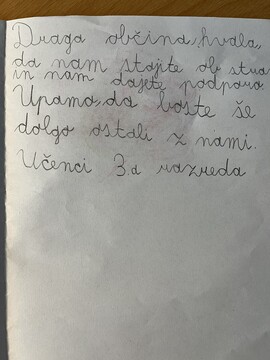 Draga občina, hvala,
da nam stojite ob stra
in nam dajete podporo
Upamo, da boste še
dolgo ostali z nami.
Učenci 3.a razreda